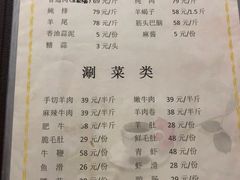 炖排 79元/斤 羊蝎子 58元/1.5斤
羊尾 79元/斤 筋头巴脑 58元/斤
香油蒜泥 5元/份 麻酱 5元/份
糖蒜 3元/头
涮菜类
手切羊肉 39元/半斤 嫩牛肉 39元/半斤
麻辣牛肉 39元/半斤 羊肉卷 38元/半斤
肥牛 38元/半斤 羊肚 38元/份
脆毛肚 38元/份 鲜毛肚 48元/份
牛鞭 58元/份 青虾 48元/份
鱼滑 38元/份 虾滑 38元/份